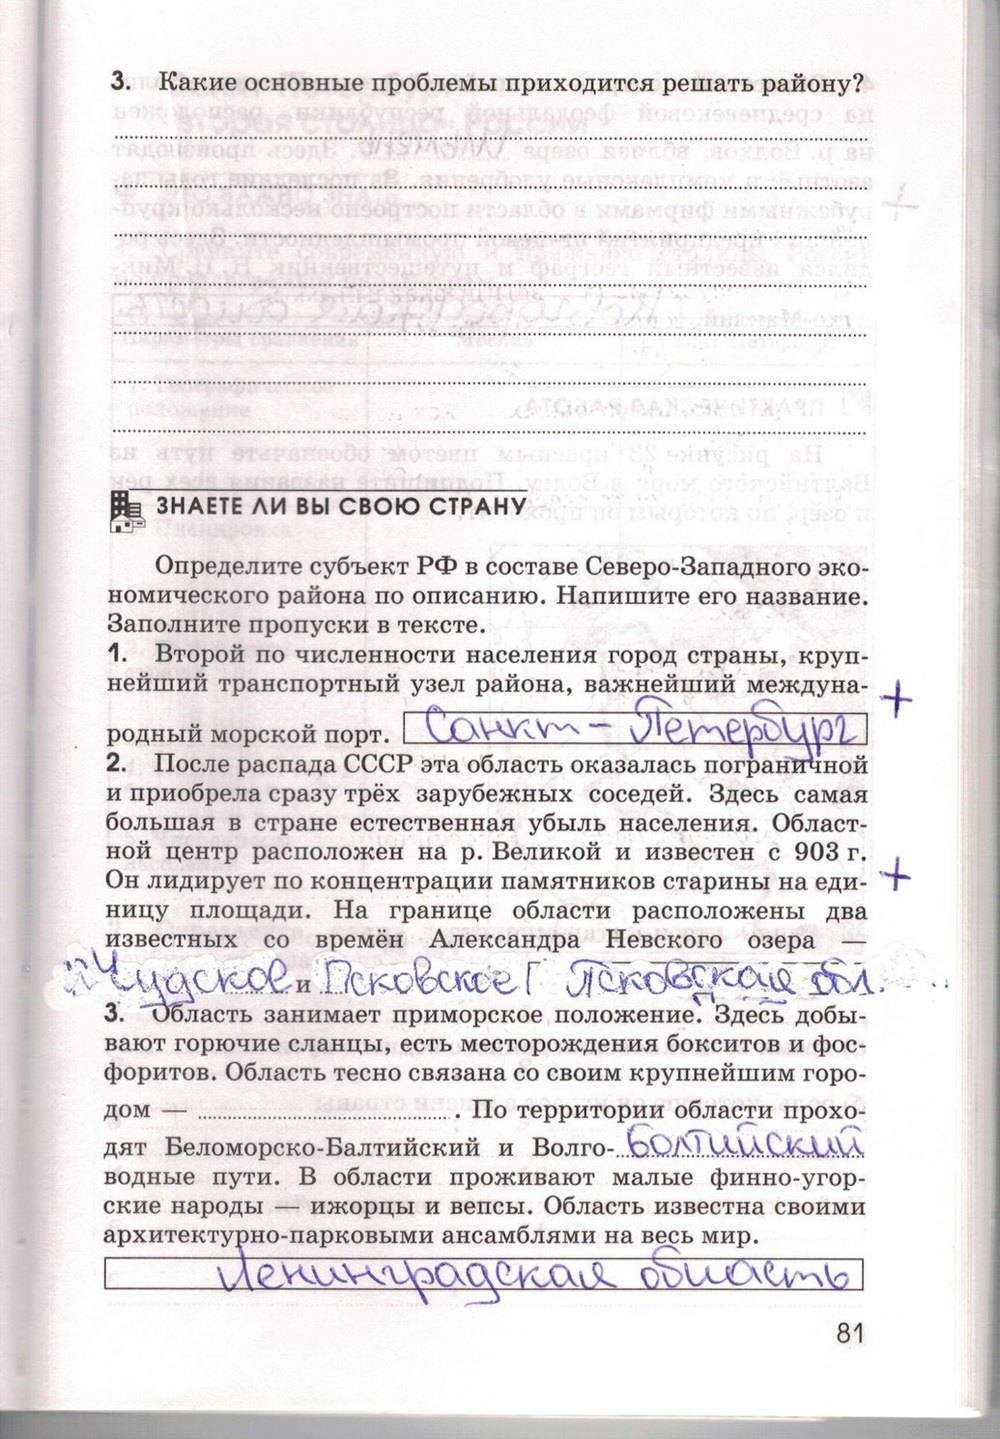 3. Какие основные проблемы приходится решать району?
ЗНАЕТЕ ЛИ ВЫ СВОЮ СТРАНУ
Определите субъект РФ в составе Северо-Западного эко-
номического района по описанию. Напишите его название.
Заполните пропуски в тексте.
1. Второй по численности населения город страны, круп-
нейший транспортный узел района, важнейший междуна-
родный морской порт. Санкт-Петербург
2. После распада СССР эта область оказалась пограничной
и приобрела сразу трёх зарубежных соседей. Здесь самая
большая в стране естественная убыль населения. Област-
ной центр расположен на р. Великой и известен с 903 г.
Он лидирует по концентрации памятников старины на еди-
ницу площади. На границе области расположены два
известных со времён Александра Невского озера —
Чудское и Псковское Псковская обл.
3. Область занимает приморское положение. Здесь добы-
вают горючие сланцы, есть месторождения бокситов и фос-
форитов. Область тесно связана со своим крупнейшим горо-
дом — . По территории области прохо-
дят Беломорско-Балтийский и Волго-Болтийский
водные пути. В области проживают малые финно-угор-
ские народы — ижорцы и вепсы. Область известна своими
архитектурно-парковыми ансамблями на весь мир.
Ленинградская область
81